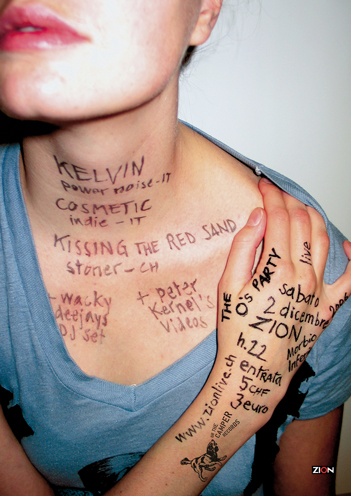 KELVIN
power noise-IT
COSMETIC
indie - IT
KISSING THE RED SAND
stoner - CH
+ wacky
deejays
DJ set
+ peter
Kernel's
videos
THE O.'S PARTY
live
sabato
2 dicembre 2006
ZION
Morbio
Inferiore
h.22
entrata
5 CHF
3 euro
www.zionlive.ch
ON THE CAMPER
RECORDS
ZION